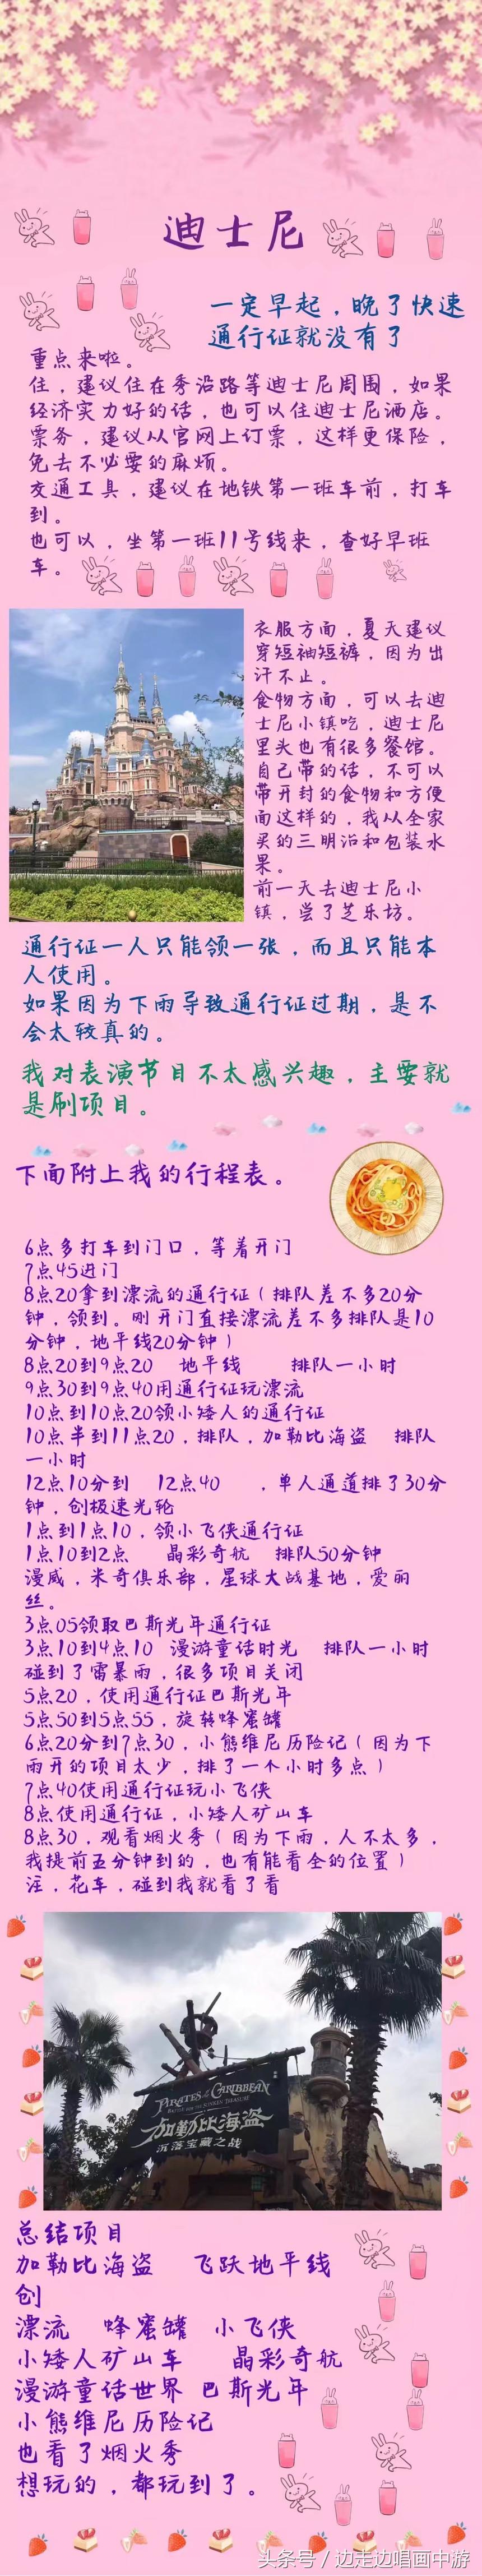 迪士尼
一定早起，晚了快速
通行证就没有了
重点来啦。
住，建议住在秀沿路等迪士尼周围，如果
经济实力好的话，也可以住迪士尼酒店。
票务，建议从官网上订票，这样更保险，
免去不必要的麻烦。
交通工具，建议在地铁第一班车前，打车
到。
也可以，坐第一班11号线来，查好早班
车。
衣服方面，夏天建议
穿短袖短裤，因为出
汗不止。
食物方面，可以去迪
士尼小镇吃，迪士尼
里头也有很多餐馆。
自己带的话，不可以
带开封的食物和方便
面这样的，我从全家
买的三明治和包装水
果。
前一天去迪士尼小
镇，尝了芝乐坊。
通行证一人只能领一张，而且只能本
人使用。
如果因为下雨导致通行证过期，是不
会太较真的。
我对表演节目不太感兴趣，主要就
是刷项目。
下面附上我的行程表。
6点多打车到门口，等着开门
7点45进门
8点20拿到漂流的通行证（排队差不多20分
钟，领到。刚开门直接漂流差不多排队是10
分钟，地平线20分钟）
8点20到9点20 地平线 排队一小时
9点30到9点40用通行证玩漂流
10点到10点20领小矮人的通行证
10点半到11点20，排队，加勒比海盗 排队
一小时
12点10分到 12点40 ，单人通道排了30分
钟，创极速光轮
1点到1点10，领小飞侠通行证
1点10到2点 晶彩奇航 排队50分钟
漫威，米奇俱乐部，星球大战基地，爱丽
丝。
3点05领取巴斯光年通行证
3点10到4点10 漫游童话时光 排队一小时
碰到了雷暴雨，很多项目关闭
5点20，使用通行证巴斯光年
5点50到5点55，旋转蜂蜜罐
6点20分到7点30，小熊维尼历险记（因为下
雨开的项目太少，排了一个小时多点）
7点40使用通行证玩小飞侠
8点使用通行证，小矮人矿山车
8点30，观看烟火秀（因为下雨，人不太多，
我提前五分钟到的，也有能看全的位置）
注，花车，碰到我就看了看
PIRATES of the CARIBBEAN
BATTLE FOR THE SUNKEN TREASURE
加勒比海盗
沉落宝藏之战
总结项目
加勒比海盗 飞跃地平线
创
漂流 蜂蜜罐 小飞侠
小矮人矿山车 晶彩奇航
漫游童话世界 巴斯光年
小熊维尼历险记
也看了烟火秀
想玩的，都玩到了。
头条号 / 边走边唱画中游